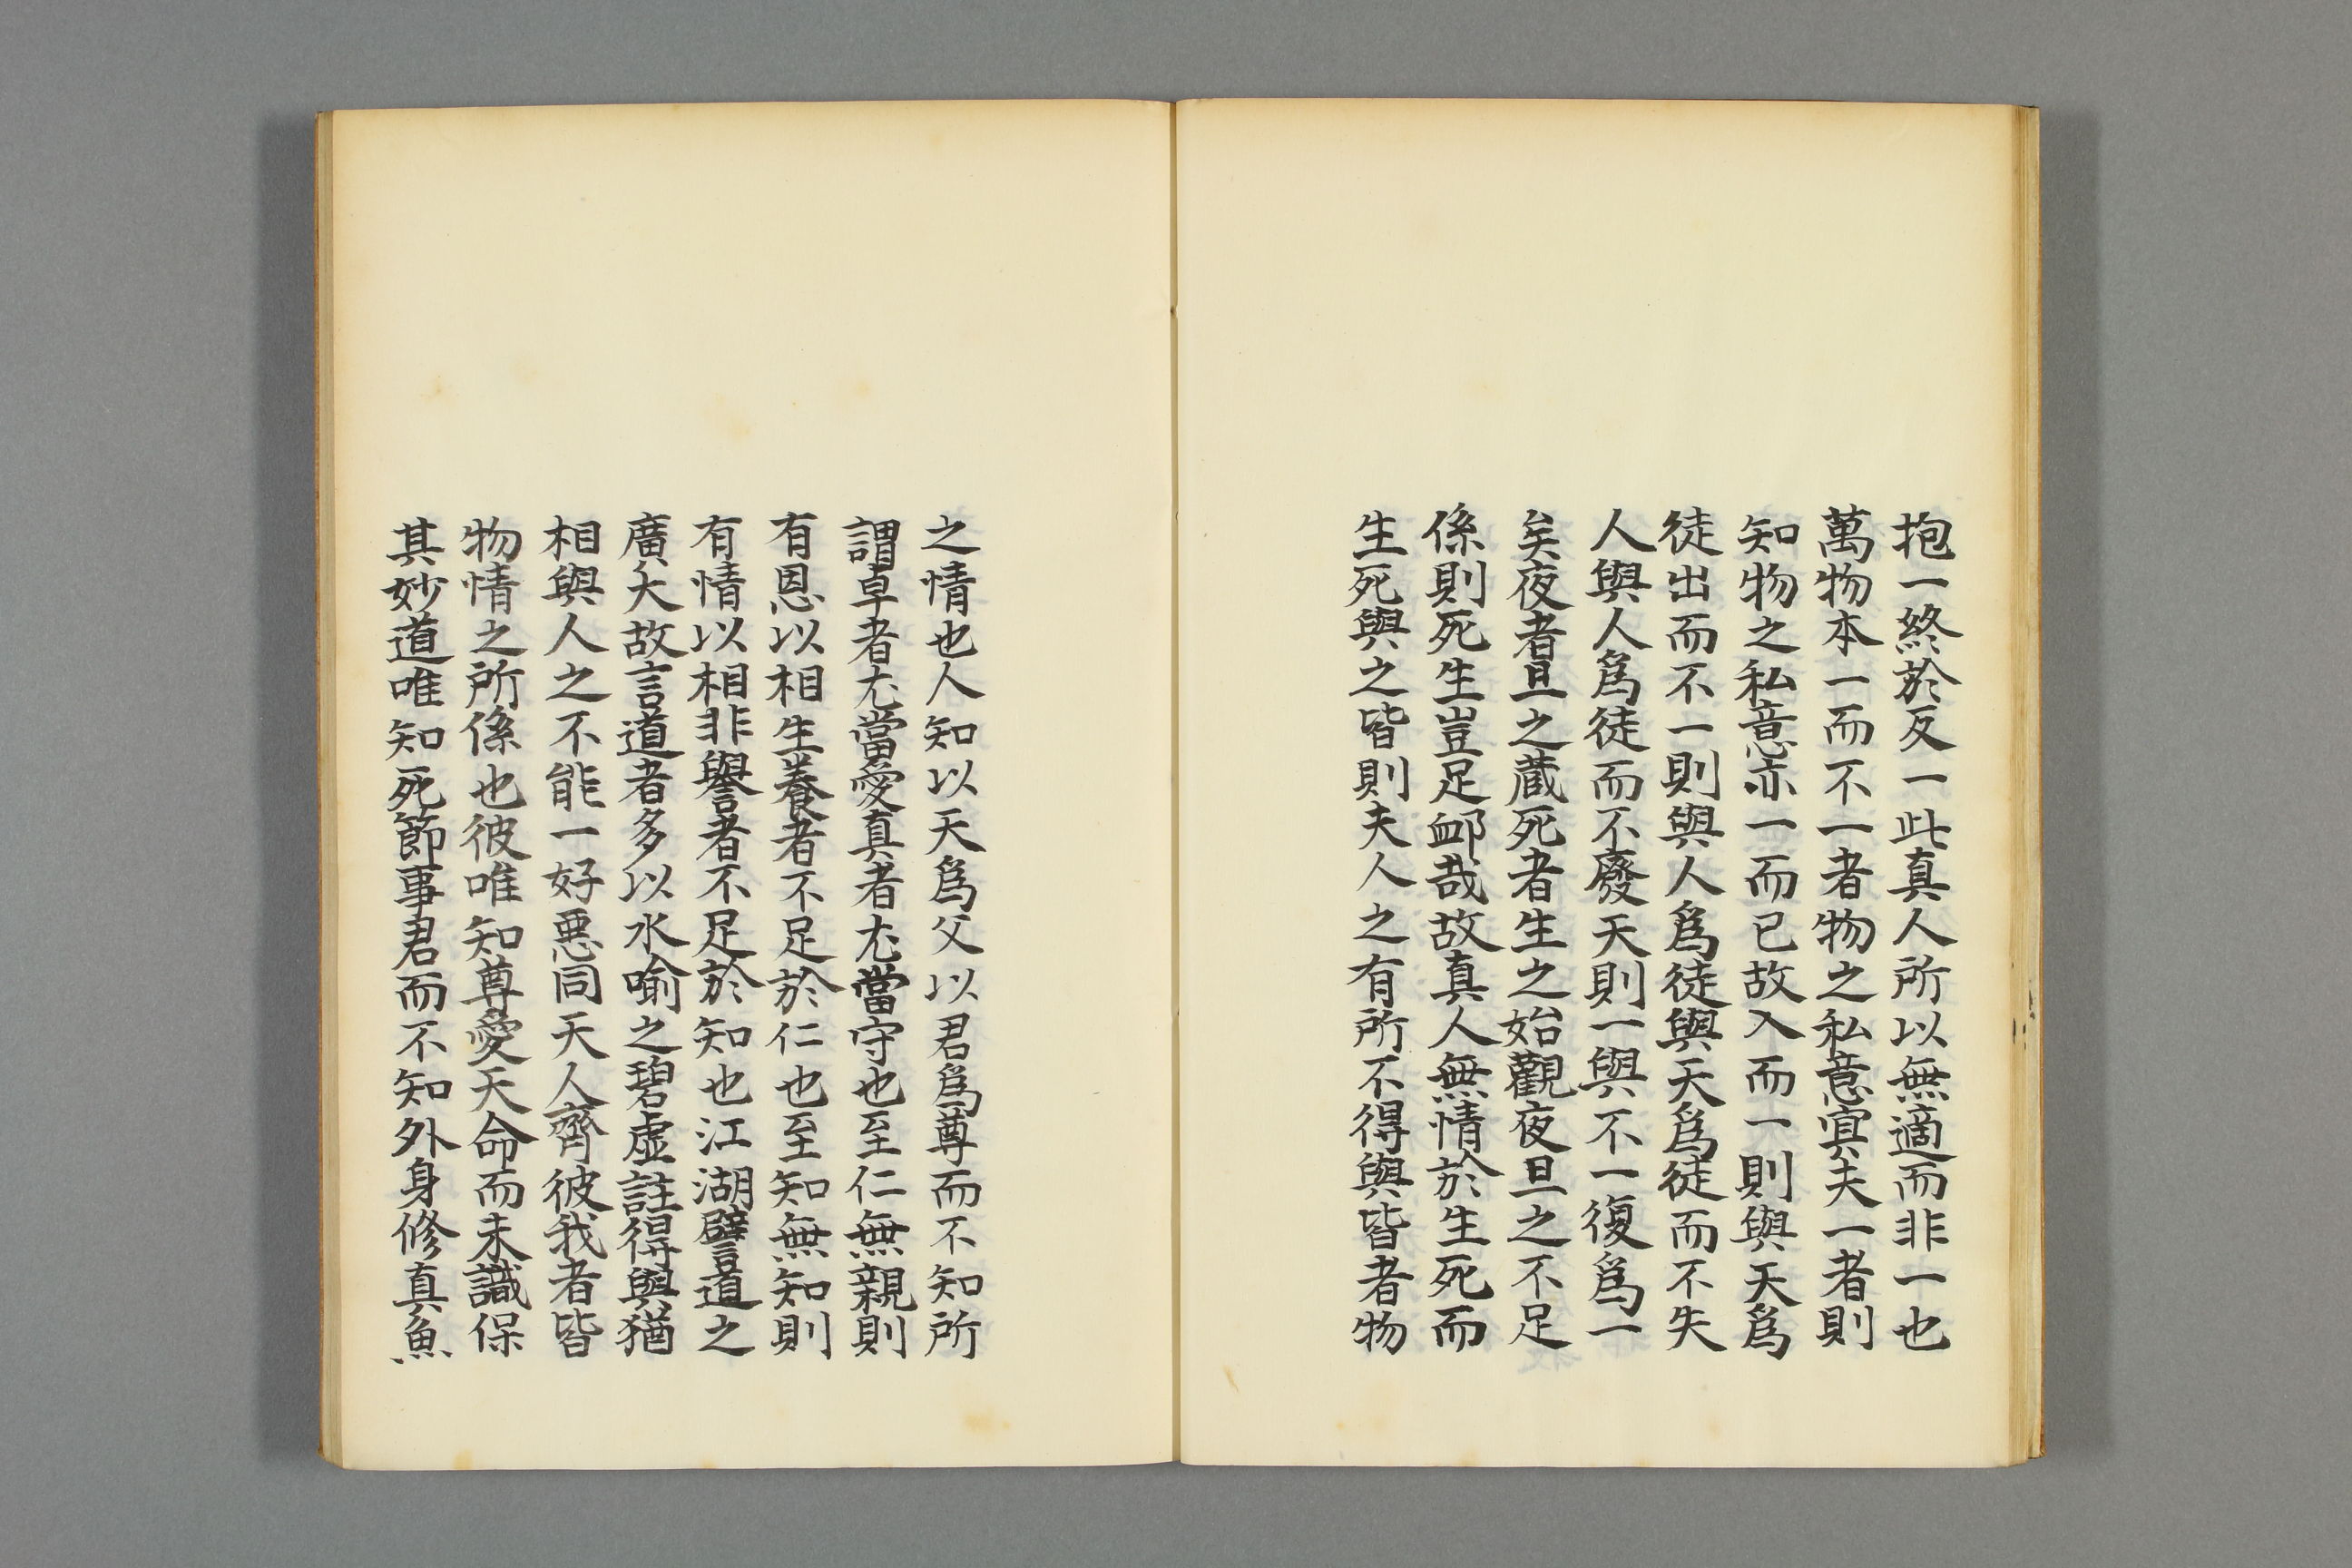 抱一終於反一此真人所以無適而非一也
萬物本一而不一者物之私意寘夫一者則
知物之私意亦一而已故入而一則與天爲
徒出而不一則與人爲徒與天爲徒而不失
人與人爲徒而不廢天則一與不一復爲一
矣夜者旦之蔵死者生之始觀夜旦之不足
係則死生豈足衈哉故真人無情於生死而
生死與之皆則夫人之有所不得與皆者物
之情也人知以天爲父以君爲尊而不知所
謂卓者尤當愛真者尤當守也至仁無親則
有恩以相生養者不足於仁也至知無知則
有情以相非譽者不足於知也江湖譬道之
廣大故言道者多以水喻之碧虛註得與猶
相與人之不能一好惡同天人齊彼我者皆
物情之所係也彼唯知尊愛天命而未識保
其妙道唯知死節事君而不知外身修真魚